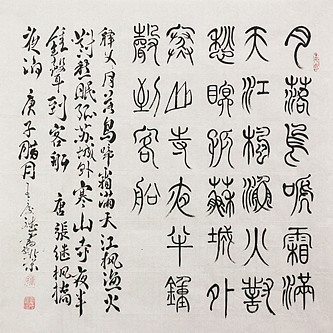 月落烏啼霜滿
天江楓漁火對
愁眠姑蘇城外
寒山寺夜半鐘
聲到客船
釋文月落烏啼霜滿天江楓漁火
對愁眠姑苏城外寒山寺夜半
鐘聲到客船 唐張继楓橋
夜泊 庚子腊月